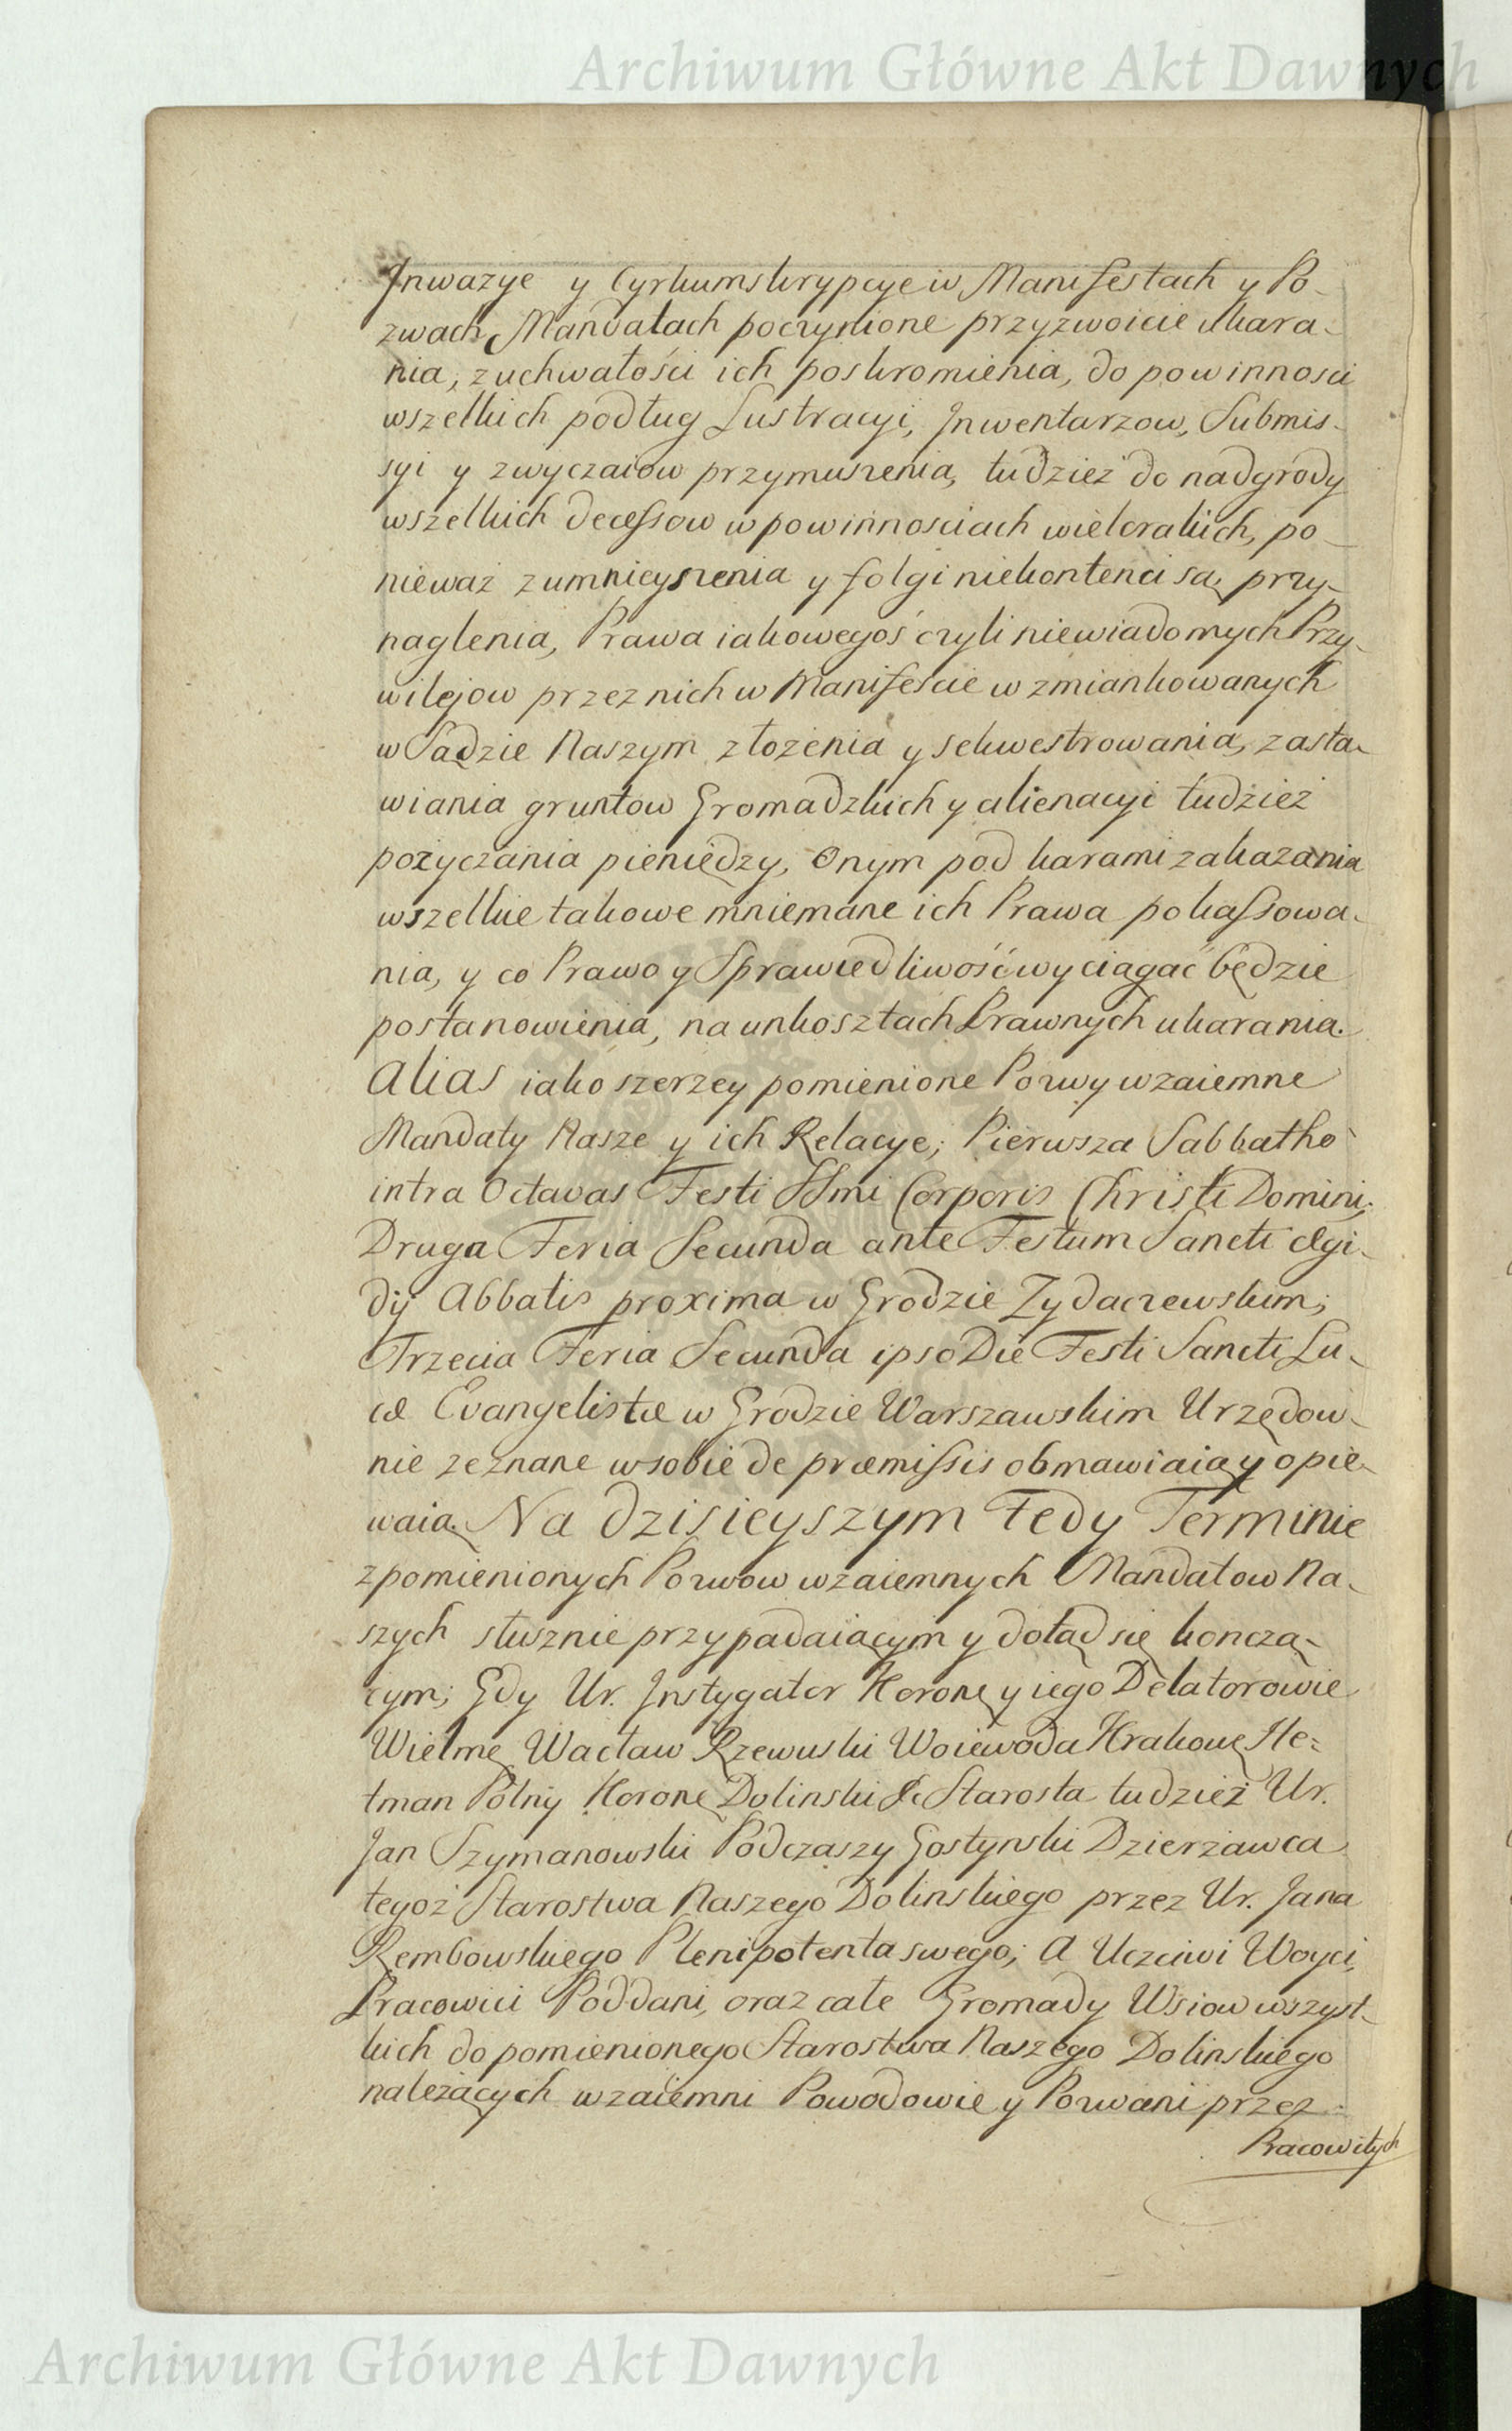 Archiwum Główne Akt Dawnych
Inwazye y Cyrkumskrypcye w Manifestach y Po-
zwach Mandatach poczynione przyzwoicie ukara-
nia, zuchwałości ich poskromienia, do powinnosci
wszelkich podług Lustracyi, Inwentarzow, Submis-
syi y zwyczaiow przymuszenia, tudzież do nadgrody
wszelkich decessow w powinnosciach wielorakich, po-
nieważ z umnieyszenia y folgi niekontenci są, przy-
naglenia, Prawa iakowegoś czyli niewiadomych Przy-
wilejow przez nich w Manifescie wzmiankowanych
w Sądzie Naszym złożenia y sekwestrowania, zasta-
wiania gruntow Gromadzkich y alienacyi tudzież
pożyczania pieniędzy, Onym pod karami zakazania
wszelkie takowe mniemane ich Prawa pokassowa-
nia, y co Prawo y Sprawiedliwość wyciągać będzie
postanowienia, na unkosztach Prawnych ukarania.
Alias iako szerzey pomienione Pozwy wzaiemne
Mandaty Nasze y ich Relacye; Pierwsza Sabbatho
intra Octavas Festi SSmi Corporis Christi Domini;
Druga Feria Secunda ante Festum Sancti Ægi-
dij Abbatis proxima w Grodzie Zydaczewskim;
Trzecia Feria Secunda ipso Die Festi Sancti Lu-
cæ Evangelistæ w Grodzie Warszawskim Urzędow-
nie zeznane w sobie de præmissis obmawiaią y opie-
waią. Na dzisieyszym Tedy Terminie
z pomienionych Pozwow wzaiemnych Mandatow Na-
szych słusznie przypadaiącym y dotąd się koncza-
cym; Gdy Ur. Instygator Koronę y iego Delatorowie
Wielmę Wacław Rzewuski Woiewoda Krakowę He-
tman Polny Koronę Dolinski &c Starosta tudzież Ur.
Jan Szymanowski Podczaszy Gostynski Dzierżawca
tegoż Starostwa Naszego Dolinskiego przez Ur. Jana
Rembowskiego Plenipotenta swego; A Uczciwi Woyci,
Pracowici Poddani, oraz całe Gromady Wsiow wszyst-
kich do pomienionego Starostwa Naszego Dolinskiego
należących wzaiemni Powodowie y Pozwani przez
Pracowitych
Archiwum Główne Akt Dawnych